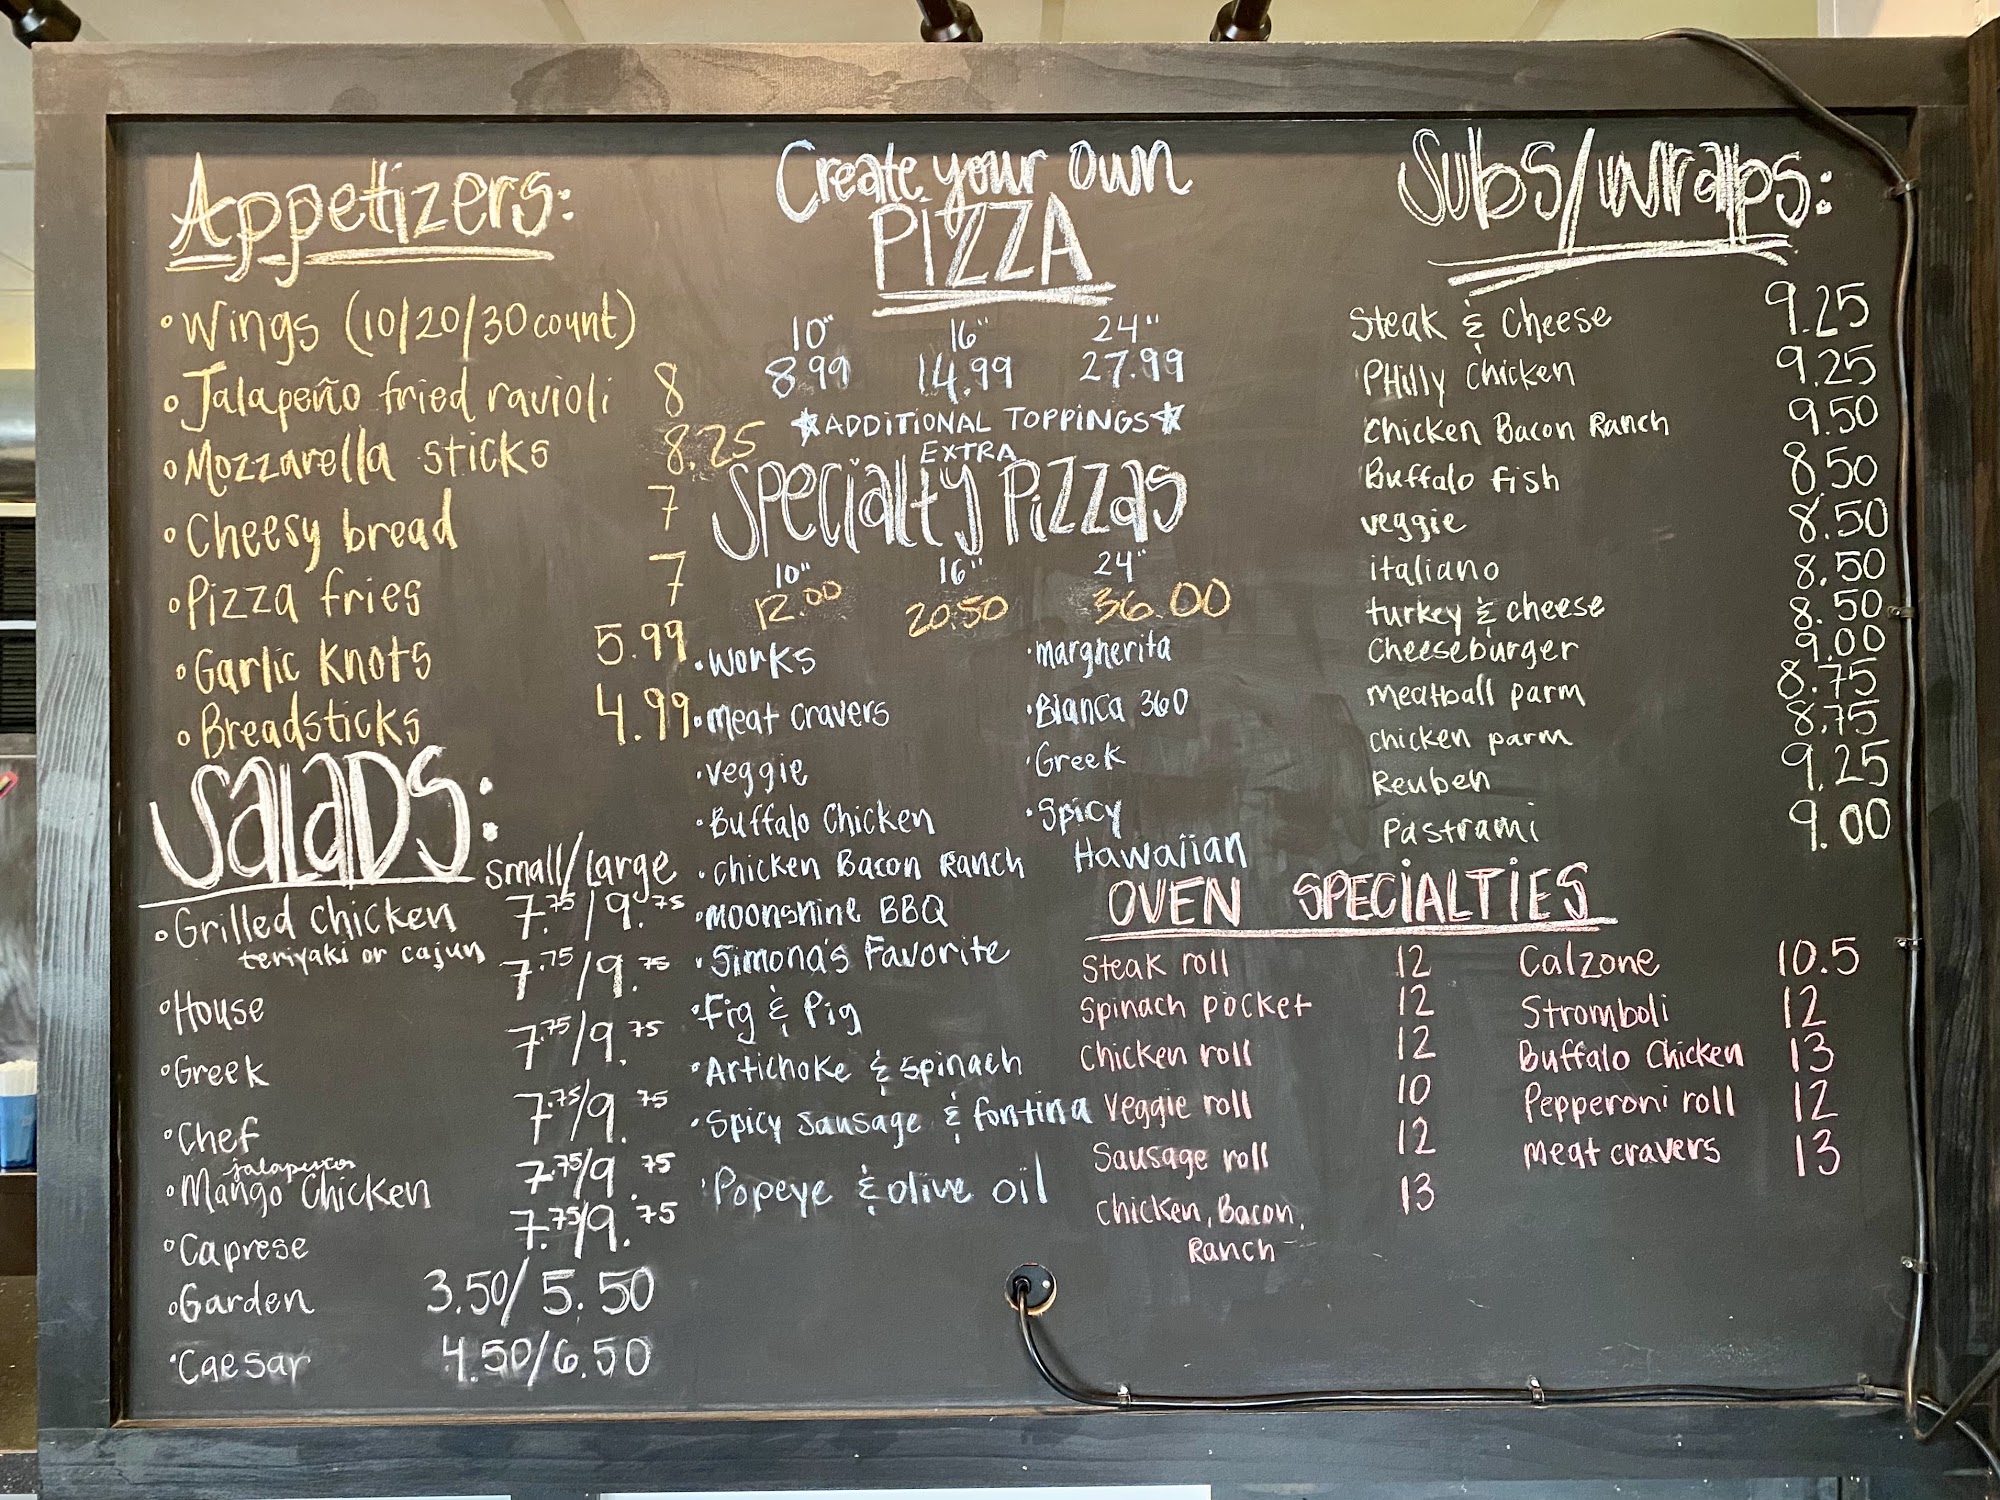 Appetizers:
• Wings (10/20/30 count)
• Jalapeño fried ravioli 8
• Mozzarella sticks 8.25
• Cheesy bread 7
• Pizza fries 7
• Garlic Knots 5.99
• Breadsticks 4.99
Salads:
Small/Large
• Grilled Chicken 7.75/9.75
teriyaki or cajun
• House 7.75/9.75
• Greek 7.75/9.75
• Chef 7.75/9.75
jalapeño
• Mango Chicken 7.75/9.75
• Caprese 7.75/9.75
• Garden 3.50/5.50
• Caesar 4.50/6.50
Create your own
PiZZA
10" 16" 24"
8.99 14.99 27.99
★ADDITIONAL TOPPINGS★
EXTRA
Specialty Pizzas
10" 16" 24"
12.00 20.50 36.00
• Works
• Meat Cravers
• Veggie
• Buffalo Chicken
• Chicken Bacon Ranch
• Moonshine BBQ
• Simona's Favorite
• Fig & Pig
• Artichoke & Spinach
• Spicy Sausage & fontina
• Popeye & olive oil
• Margherita
• Blanca 360
• Greek
• Spicy
Hawaiian
Subs/Wraps:
Steak & Cheese 9.25
PHilly Chicken 9.25
Chicken Bacon Ranch 9.50
Buffalo Fish 8.50
veggie 8.50
italiano 8.50
turkey & cheese 8.50
Cheeseburger 9.00
Meatball parm 8.75
chicken parm 8.75
Reuben 9.25
Pastrami 9.00
OVEN SPECIALTIES
Steak roll 12
Spinach pocket 12
Chicken roll 12
Veggie roll 10
Sausage roll 12
Chicken, Bacon, 13
Ranch
Calzone 10.5
Stromboli 12
Buffalo Chicken 13
Pepperoni roll 12
Meat cravers 13